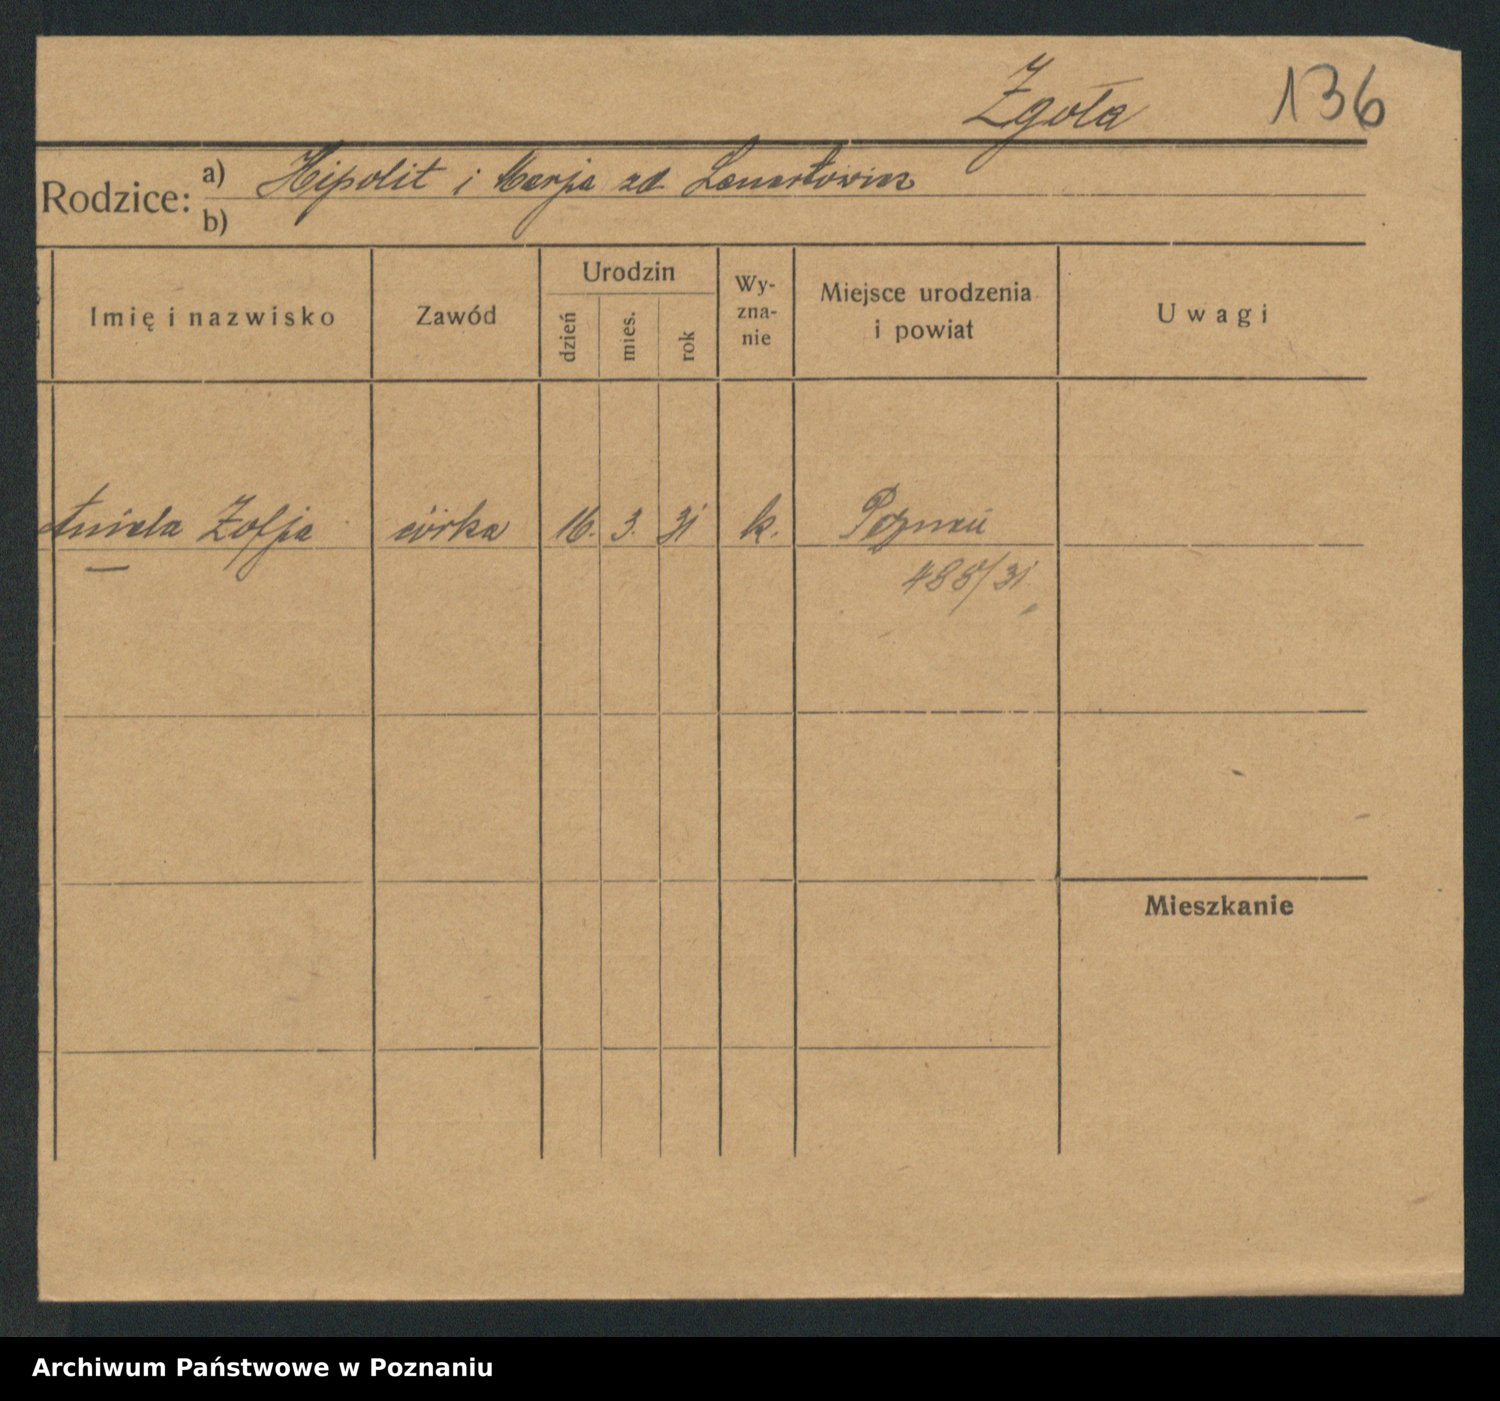 Zgoła 136
Rodzice: a) Hipolit i Marja zd Lenartowicz
b)
Imię i nazwisko Zawód Urodzin dzień mies. rok Wyzna-nie Miejsce urodzenia i powiat Uwagi
Aniela Zofja córka 16. 3. 31 k. Poznań
488/31
Mieszkanie
Archiwum Państwowe w Poznaniu